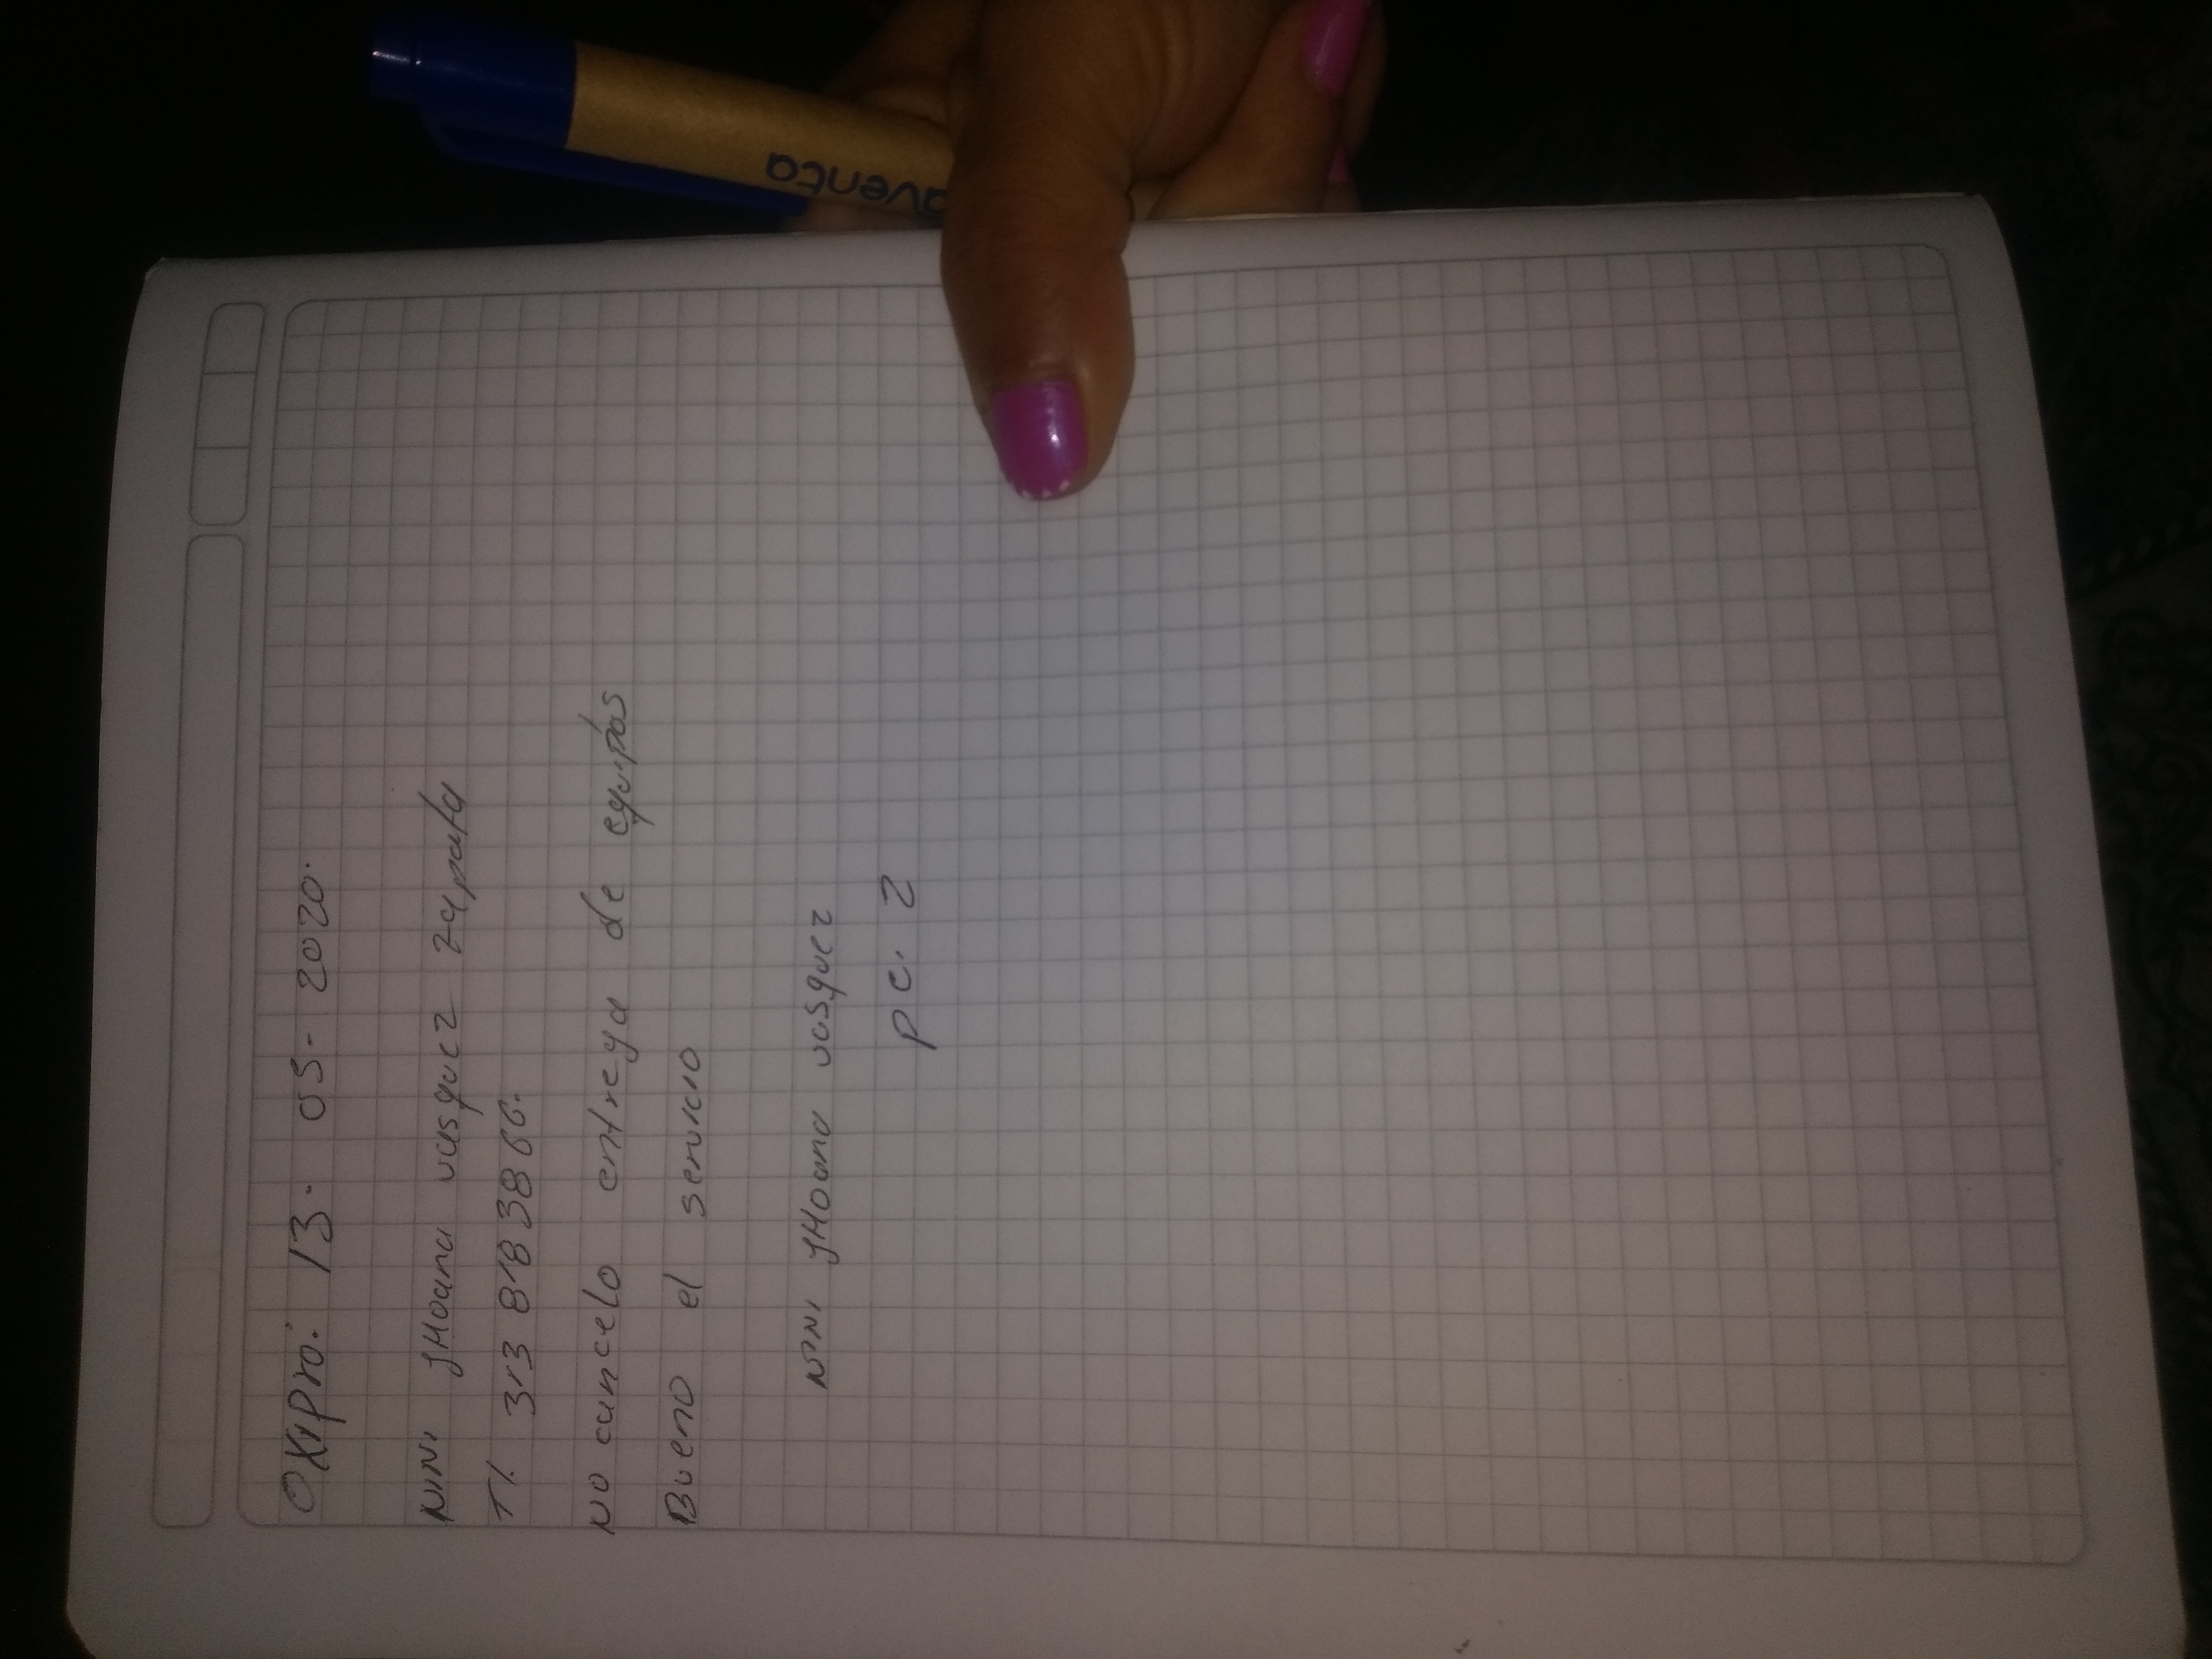 OXIPRO: 13. 05- 2020.
NINI JHOANA vasquez zapata
T1. 313 818 38 66.
NO cancelo entrega de equipos
Bueno el servicio
NINI JHOANA vasquez
PC. 2
aventa